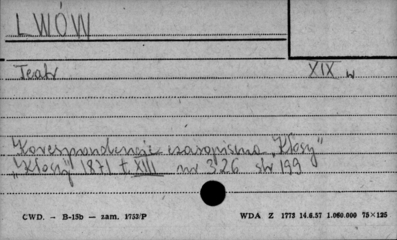 LWÓW
Teatr XIX w
Korespondencje czasopisma „Kłosy”
„Kłosy” 1871 t. XIII nr 326 str 199
CWD. – B-15b – zam. 1752/P WDA Z 1773 14.6.57 1.060.000 75×125